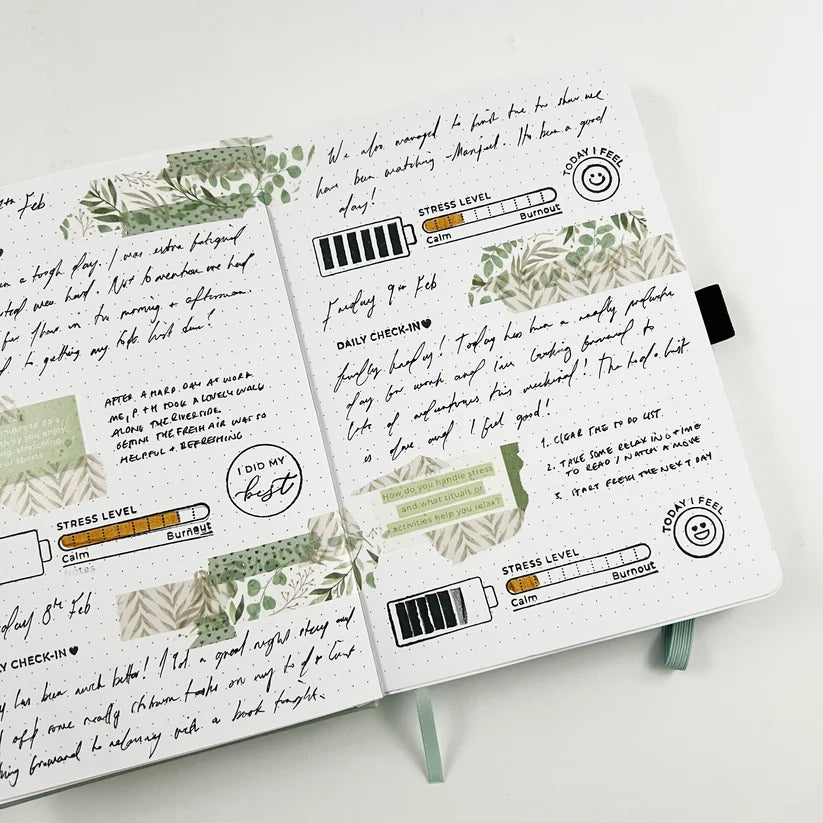 Feb
a tough day. I was extra fatigued
hard. Not to mention we had
in the morning + afternoon.
to getting my
AFTER A HARD DAY AT WORK
ME, P + H TOOK A LOVELY WALK
ALONG THE RIVERSIDE.
GETTING THE FRESH AIR WAS SO
HELPFUL + REFRESHING
I DID MY
best
STRESS LEVEL
Calm Burnout
8th Feb
CHECK-IN
has been much better! I got a good night sleep and
off some really tasks on my to do list
forward to relaxing with a book tonight.
We also managed to the tv show we
have been watching - Manifest. It's been a good
day!
TODAY I FEEL
STRESS LEVEL
Calm Burnout
Friday 9th Feb
DAILY CHECK-IN
finally Friday! Today has been a really productive
day for work and I'm looking forward to
lots of adventures this weekend! The to do list
is done and I feel good!
How do you handle stress
and what rituals or
activities help you relax?
1. CLEAR THE TO DO LIST
2. TAKE SOME RELAXING TIME
TO READ / WATCH A MOVIE
3. START FRESH THE NEXT DAY
TODAY I FEEL
STRESS LEVEL
Calm Burnout